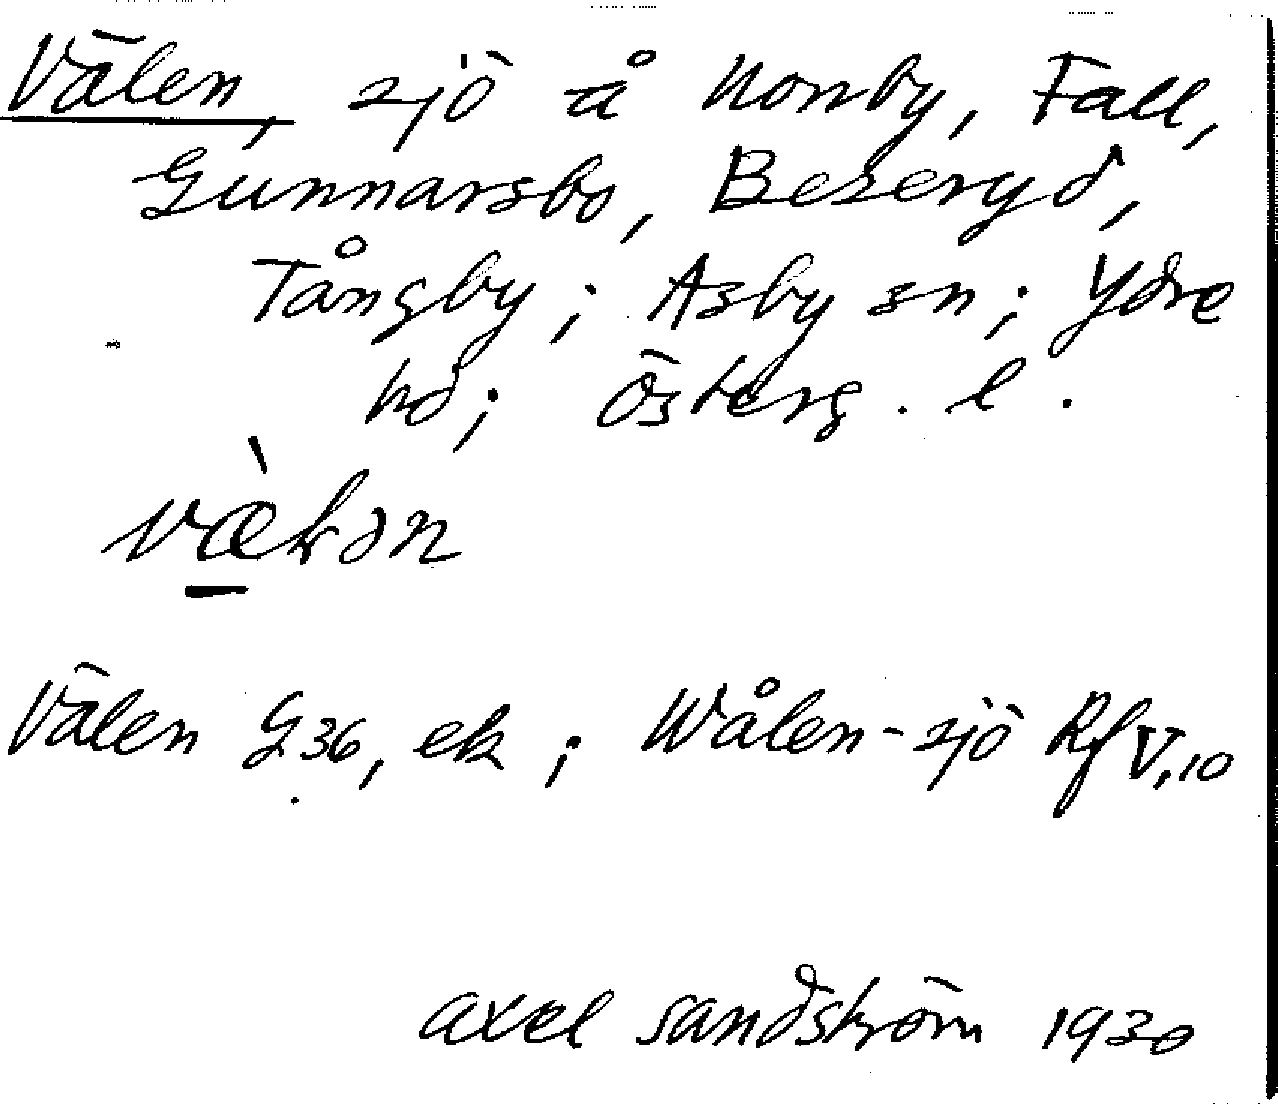 Välen, sjö å Norrby, Fall,
Gunnarsbo, Bezeryd,
Tångby; Asby sn; Ydre
hd; Österg. l.
Välen G36, ek; Wålen-sjö Rf V,10
Axel Sandström 1930